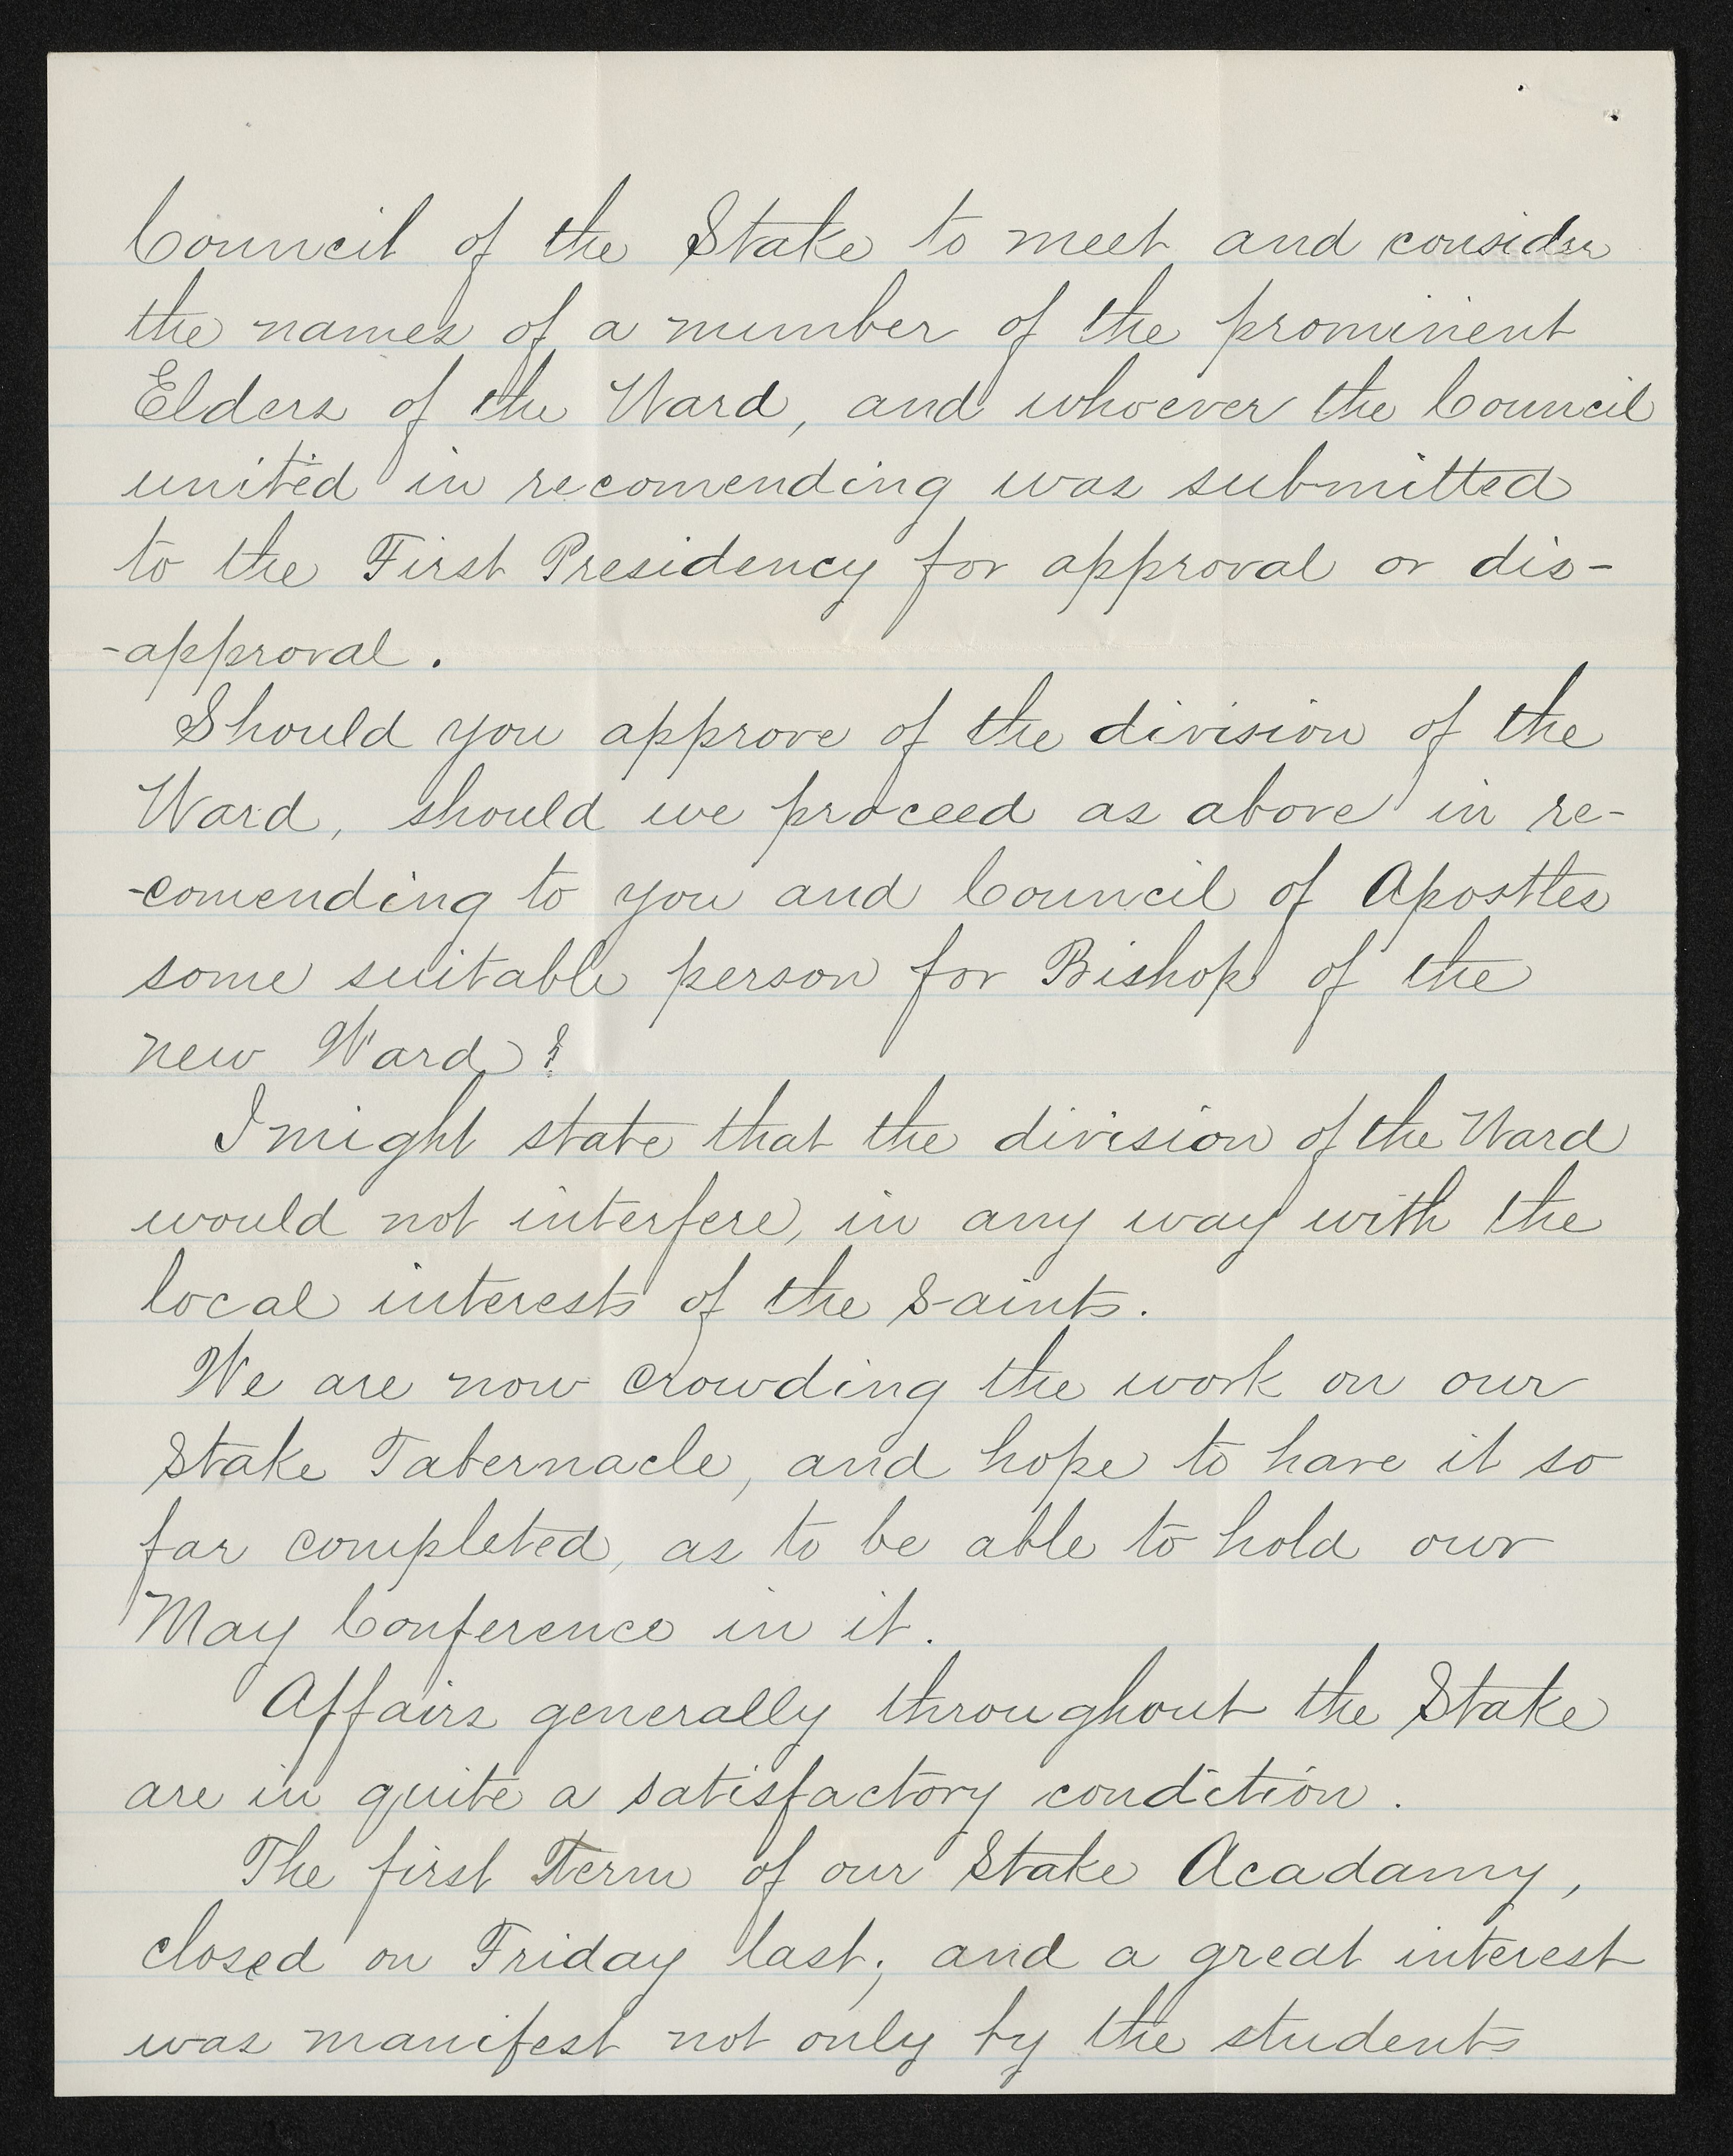 Council of the Stake to meet and consider
the names of a number of the prominent
Elders of the Ward, and whoever the Council
united in recomending was submitted
to the First Presidency for approval or dis-
-approval.
Should you approve of the division of the
Ward, should we proceed as above in re-
-comending to you and Council of Apostles
some suitable person for Bishop of the
new Ward?
I might state that the division of the Ward
would not interfere, in any way with the
local interests of the Saints.
We are now crowding the work on our
Stake Tabernacle, and hope to have it so
far completed, as to be able to hold our
May Conference in it.
Affairs generally throughout the Stake
are in quite a satisfactory condition.
The first Term of our Stake Acadamy,
closed on Friday last; and a great interest
was manifest not only by the students